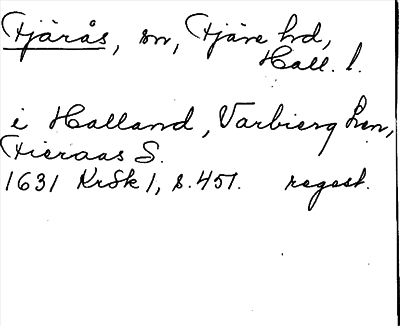 Tjärås, sn, Fjäre hd,
Hall. l.
i Halland, Varbierg Len,
Tieraas S.
1631 KrSk 1, s. 457. regest.